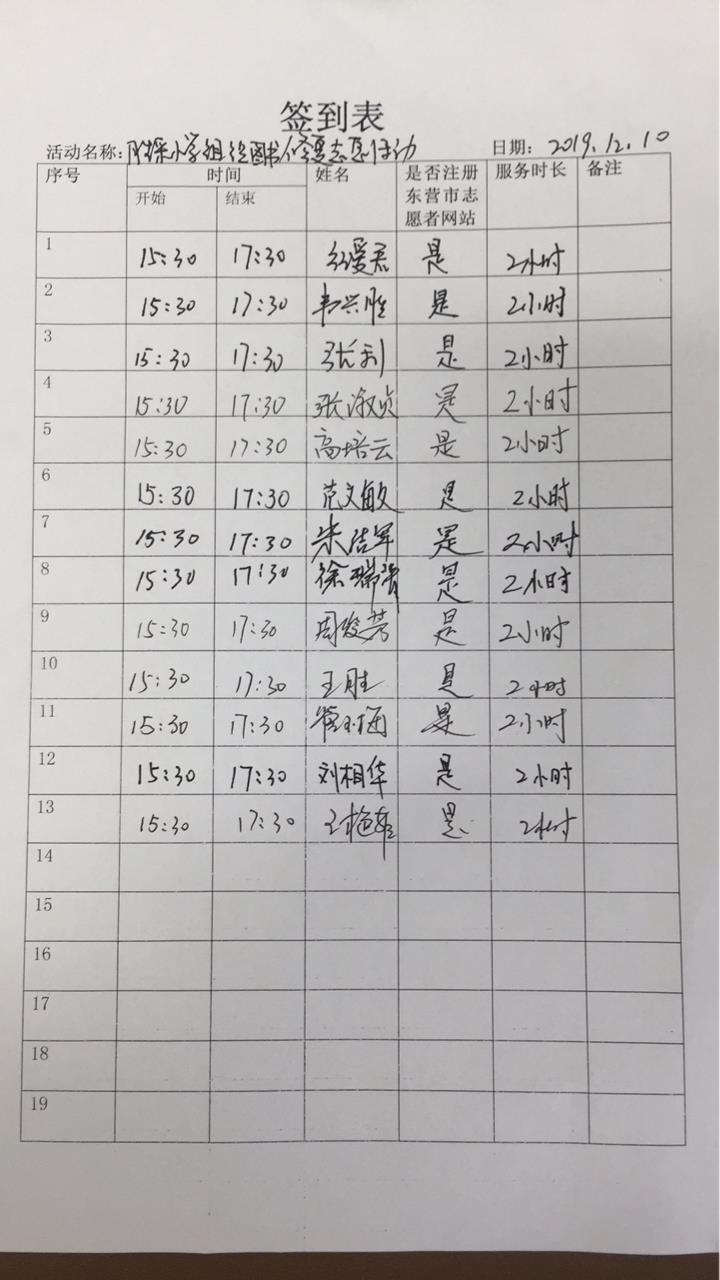 签到表
活动名称: 小学组织图书修复志愿活动 日期: 2019.12.10
序号 时间 姓名 是否注册东营市志愿者网站 服务时长 备注
开始 结束
1 15:30 17:30 爱君 是 2小时
2 15:30 17:30 韦兴胜 是 2小时
3 15:30 17:30 张利 是 2小时
4 15:30 17:30 张淑贞 是 2小时
5 15:30 17:30 高培云 是 2小时
6 15:30 17:30 范文敏 是 2小时
7 15:30 17:30 朱洁军 是 2小时
8 15:30 17:30 徐瑞 是 2小时
9 15:30 17:30 周俊芳 是 2小时
10 15:30 17:30 王胜 是 2小时
11 15:30 17:30 是 2小时
12 15:30 17:30 刘相华 是 2小时
13 15:30 17:30 王 是 2小时
14
15
16
17
18
19